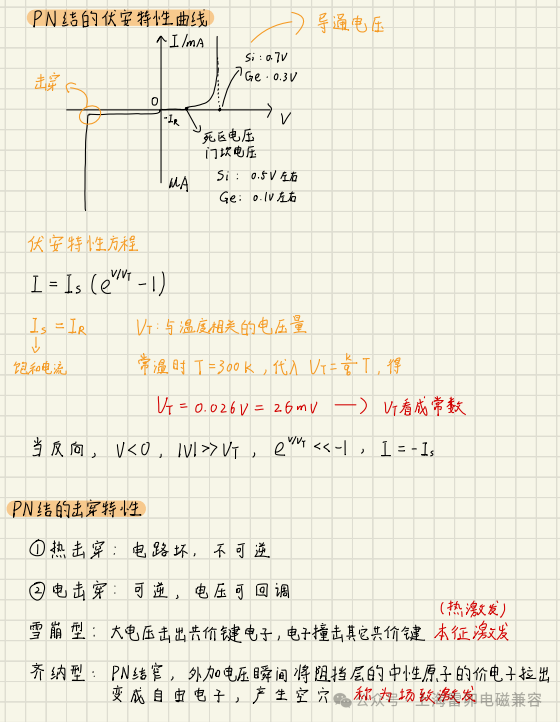 PN结的伏安特性曲线
导通电压
I/mA
Si:0.7V
Ge:0.3V
击穿
0
-IR
V
死区电压
门坎电压
μA
Si: 0.5V左右
Ge: 0.1V左右
伏安特性方程
I = Is (e^V/VT - 1)
Is = IR VT:与温度相关的电压量
饱和电流 常温时 T=300k, 代入 VT = k/q T, 得
VT = 0.026V = 26mV —> VT看成常数
当反向, V<0, |V|>>VT, e^V/VT << -1, I = -Is
PN结的击穿特性
①热击穿: 电路坏, 不可逆
②电击穿: 可逆, 电压可回调
(热激发)
雪崩型: 大电压击出共价键电子, 电子撞击其它共价键 本征激发
齐纳型: PN结窄, 外加电压瞬间将阻挡层的中性原子的价电子拉出
变成自由电子, 产生空穴 称为场致激发